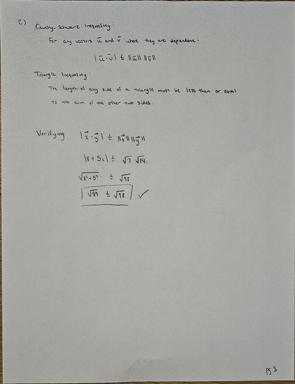 2)
Cauchy-Schwarz Inequality:
For any vectors u⃗ and v⃗ where they are dependent:
|u⃗·v⃗| ≤ ||u⃗|| ||v⃗||
Triangle Inequality
The length of any side of a triangle must be less than or equal
to the sum of the other two sides.
Verifying |x⃗·y⃗| ≤ ||x⃗|| ||y⃗||
|8+5i| ≤ √7 √14
√8²+5² ≤ √98
√89 ≤ √98 ✓
pg 3